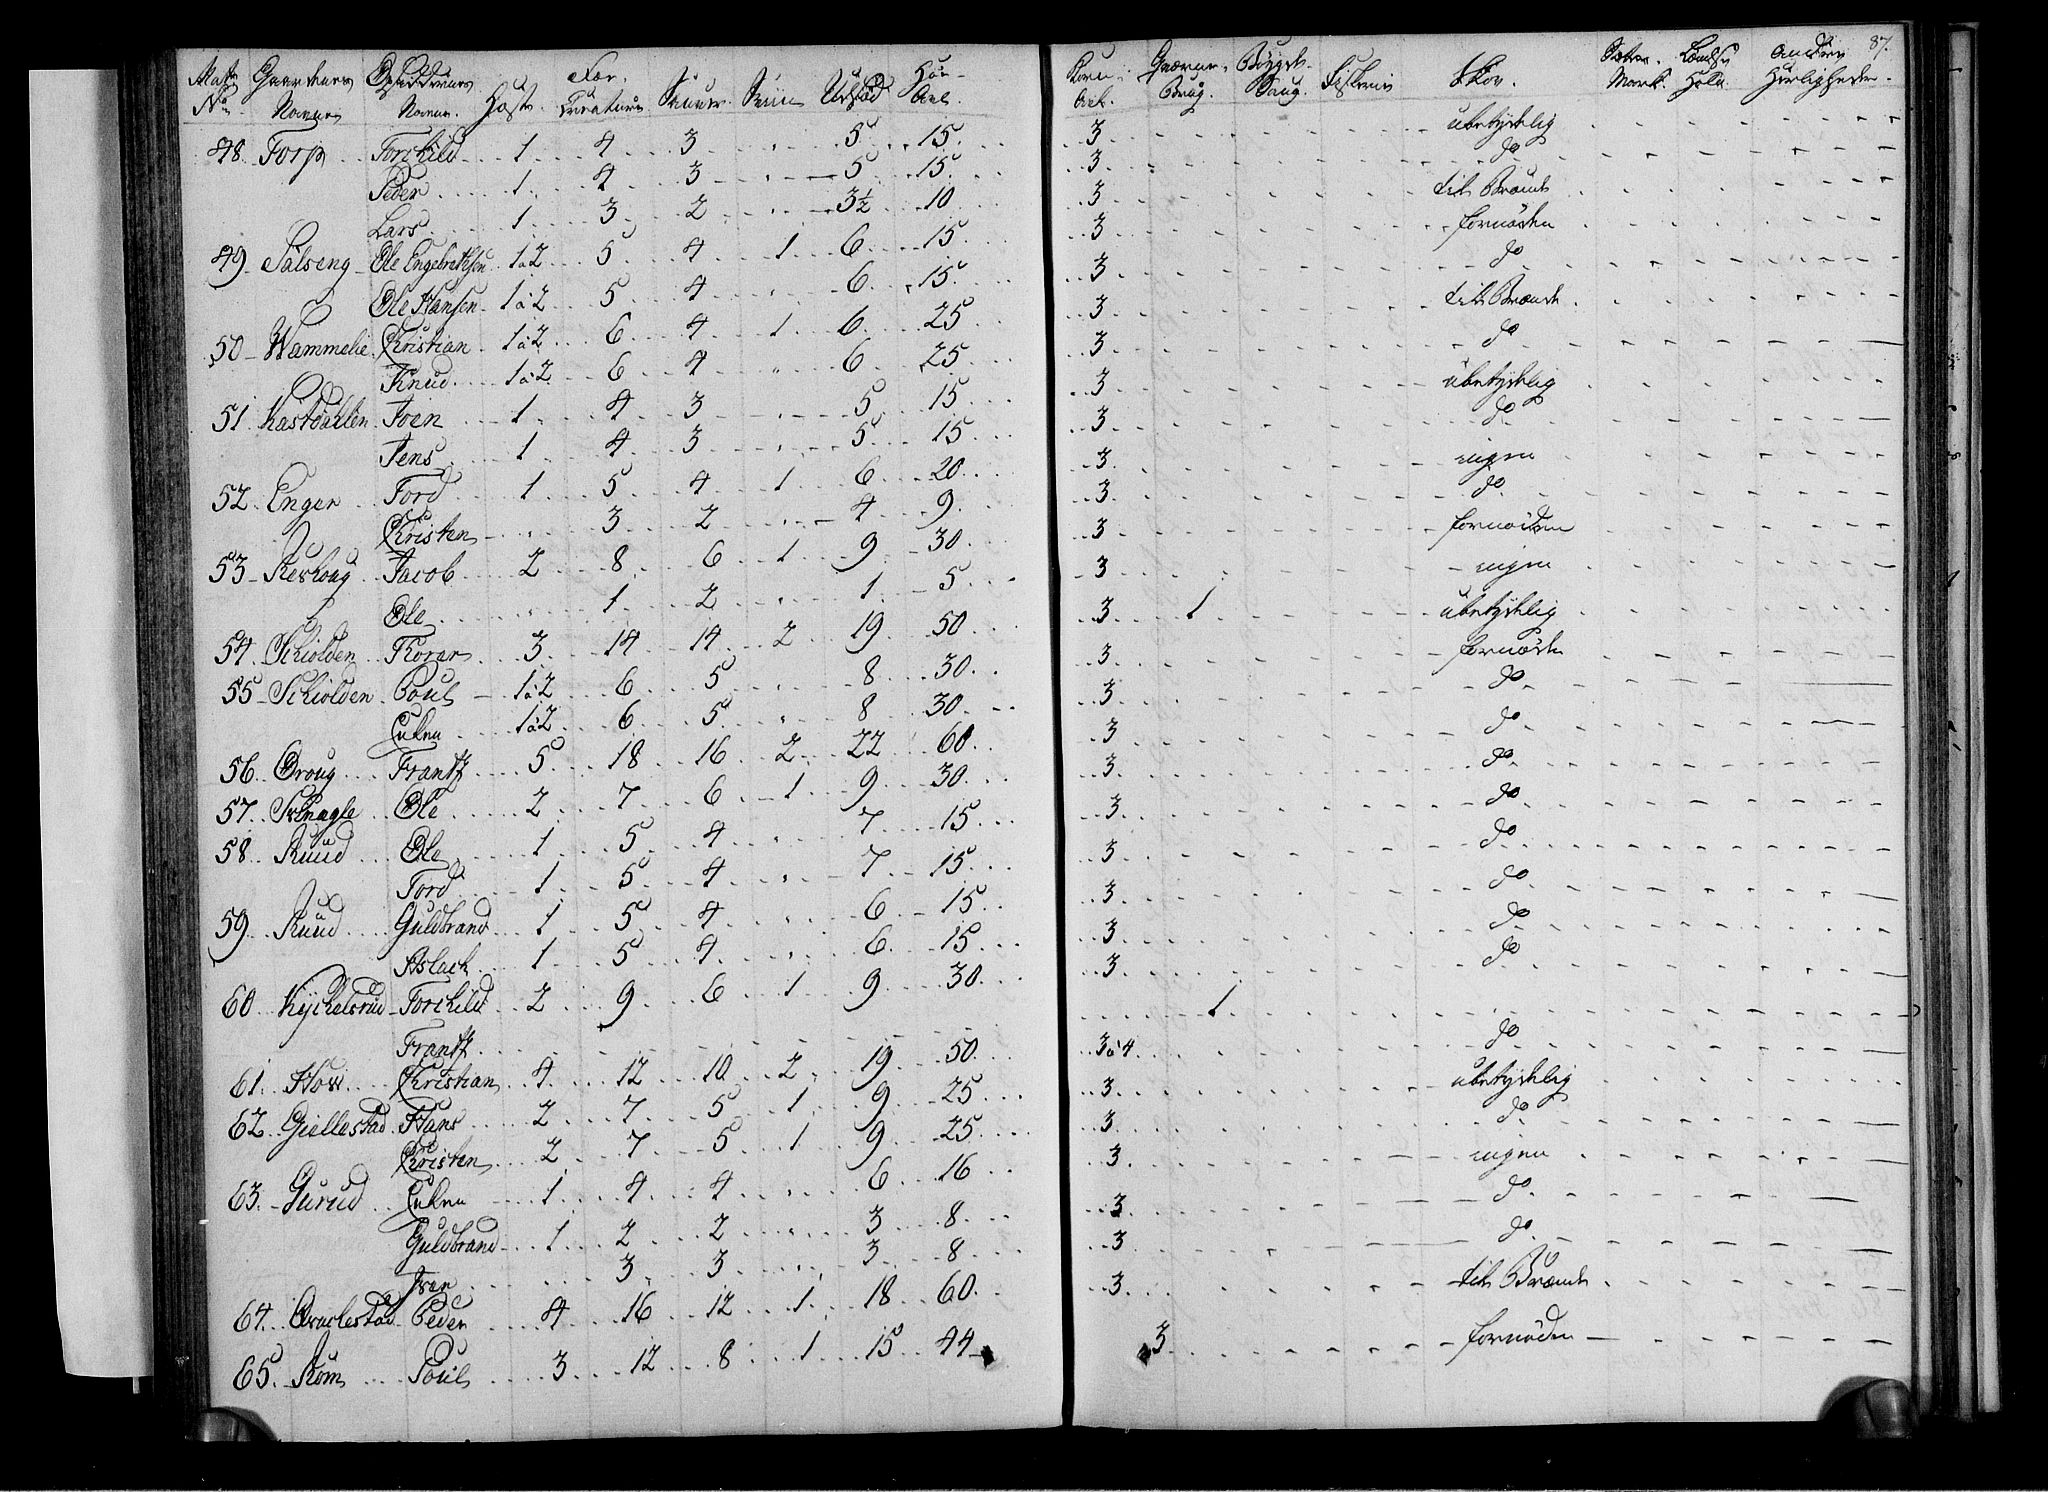 87.
Matr No Gaardenes Navne Opsiddernes Navne. Heste. Fær. Creature Sauer. Sviin Udsæd Høe-Avl. Korn-Avl. Qværne-Brug. Bøygde-Saug. Fiskerie Skov. Sæter-Mark. Andre Herligheder.
48. Torp Torchild 1 4 3 " 5 15. 3 ubetydelig
Peder 1 4 3 " 5 15. 3 do
Lars 1 3 2 " 3½ 10 3 til Brænde
49. Sälseng Ole Engebrethsen 1 a 2 5 4 1 6 15. 3 fornøden
Ole Hansen 1 a 2 5 4 " 6 15. 3 do
50 Wammelie Christian 1 a 2 6 4 1 6 25 3 til Brænde
Knud 1 a 2 6 4 " 6 25 3 do
51 Kastdahlen Joen 1 4 3 " 5 15 3 ubetydelig
Jens 1 4 3 " 5 15 3 do
52. Enger Tord 1 5 4 1 6 20. 3. ingen
Christen " 3 2 " 4 9. 3. do
53 Refhoug Jacob 2 8 6 1 9 30. 3 fornøden
Ole " 1 2 " 1 5 3 ingen
54. Schiolden Thorer 3 14 14 2 19 50 3 1 ubetydelig
55 Schiolden Poul 1 a 2 6 5 " 8 30. 3. fornøden
Even 1 a 2 6 5 " 8 30. 3 do
56. Broug Frantz 5 18 16 2 22 60 3 do
57. Schnagle Ole 2 7 6 1 9 30. 3 do
58. Ruud Ole 1 5 4 " 7 15 3 do
Tord 1 5 4 " 7 15. 3 do
59. Ruud Guldbrand 1 5 4 " 6 15 3 do
Aslach 1 5 4 " 6. 15 3 do
60. Kychelsrud Torchild 2 9 6 1 9 30. 3 do
Frantz 1
61. How Christian 4 12 10 2 19 50. 3 a 4 do
62. Giellestad Hans 2 7 5 1 9 25 3 ubetydelig
Christen 2 7 5 1 9 25. 3 do
63. Surud Even 1 4 4 " 6 16 3 ingen
Guldbrand 1 2 2 " 3 8. 3 do
Iver 3 3 " 3 8 3 do
64. Peder 4 16 12 1 18 60. 3 til Brænde
65. Røm Poul 3 12 8 1 15 44 3 fornøden